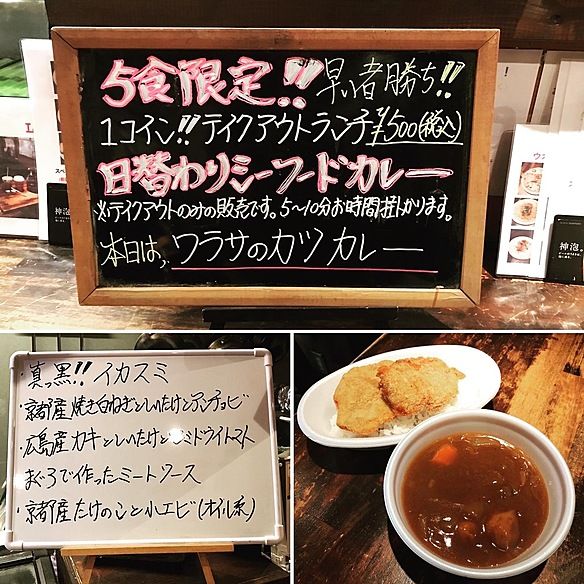 5食限定!! 早い者勝ち!!
1コイン!! テイクアウトランチ ¥500(税込)
日替わりシーフードカレー
※テイクアウトのみの販売です。5〜10分お時間掛かります。
本日は、ワラサのカツカレー
神泡。
神泡。
・真っ黒!! イカスミ
・京都産 焼き白ねぎとしいたけとアンチョビ
・広島産カキとしいたけとセミドライトマト
まぐろで作ったミートソース
・京都産たけのこと小エビ(オイル系)